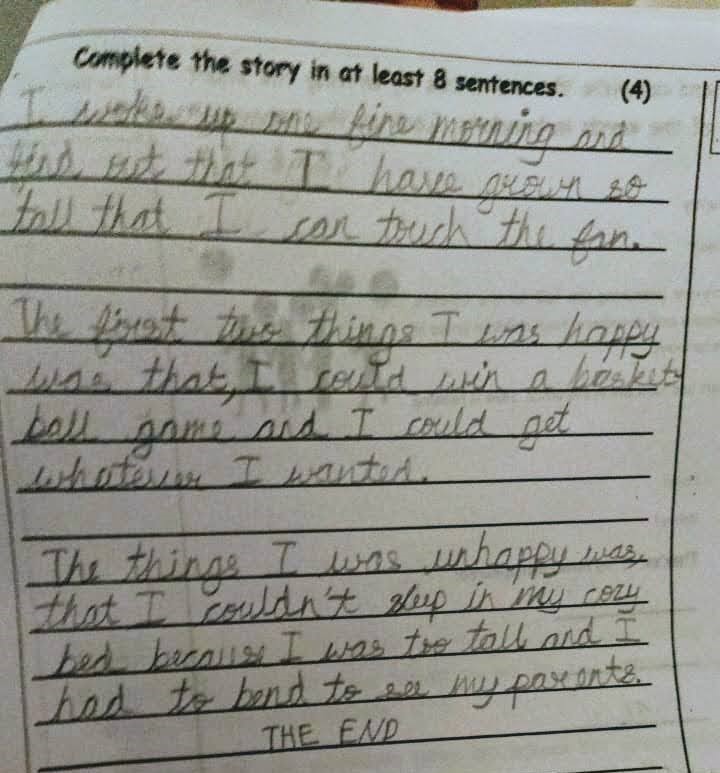 Complete the story in at least 8 sentences. (4)
I woke up one fine morning and
find out that I have grown so
tall that I can touch the fan.
The first two things I was happy
was that, I could win a basket
ball game and I could get
whatever I wanted.
The things I was unhappy was,
that I couldn't sleep in my cozy
bed because I was too tall and I
had to bend to see my parents.
THE END